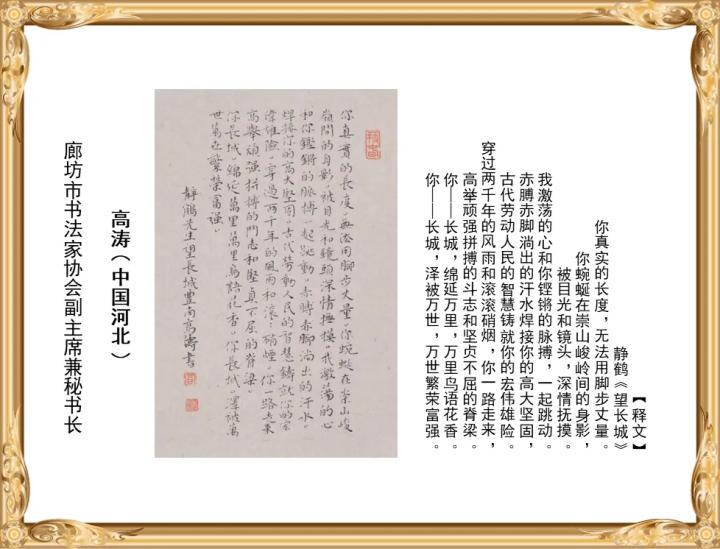 【释文】
静鹤《望长城》
你真实的长度，无法用脚步丈量。
你蜿蜒在崇山峻岭间的身影，
被目光和镜头，深情抚摸。
我激荡的心和你铿锵的脉搏，一起跳动。
赤膊赤脚淌出的汗水焊接你的高大坚固，
古代劳动人民的智慧铸就你的宏伟雄险。
穿过两千年的风雨和滚滚硝烟，你一路走来，
高举顽强拼搏的斗志和坚贞不屈的脊梁。
你——长城，绵延万里，万里鸟语花香。
你——长城，泽被万世，万世繁荣富强。
你真實的長度。無法用腳步丈量。你蜿蜒在崇山峻
嶺間的身影。被目光和鏡頭深情撫摸。我激蕩的心
和你鏗鏘的脈搏一起跳動。赤膊赤腳淌出的汗水。
焊接你的高大堅固。古代勞動人民的智慧鑄就你的宏
偉雄險。穿過兩千年的風雨和滾滾硝煙。你一路走來
高舉頑强拼搏的鬥志和堅貞不屈的脊梁。
你長城。綿延萬里萬里鳥語花香。你長城。澤被萬
世萬世繁榮富强。
静鶴先生望長城豐南高濤書
高涛（中国河北）
廊坊市书法家协会副主席兼秘书长